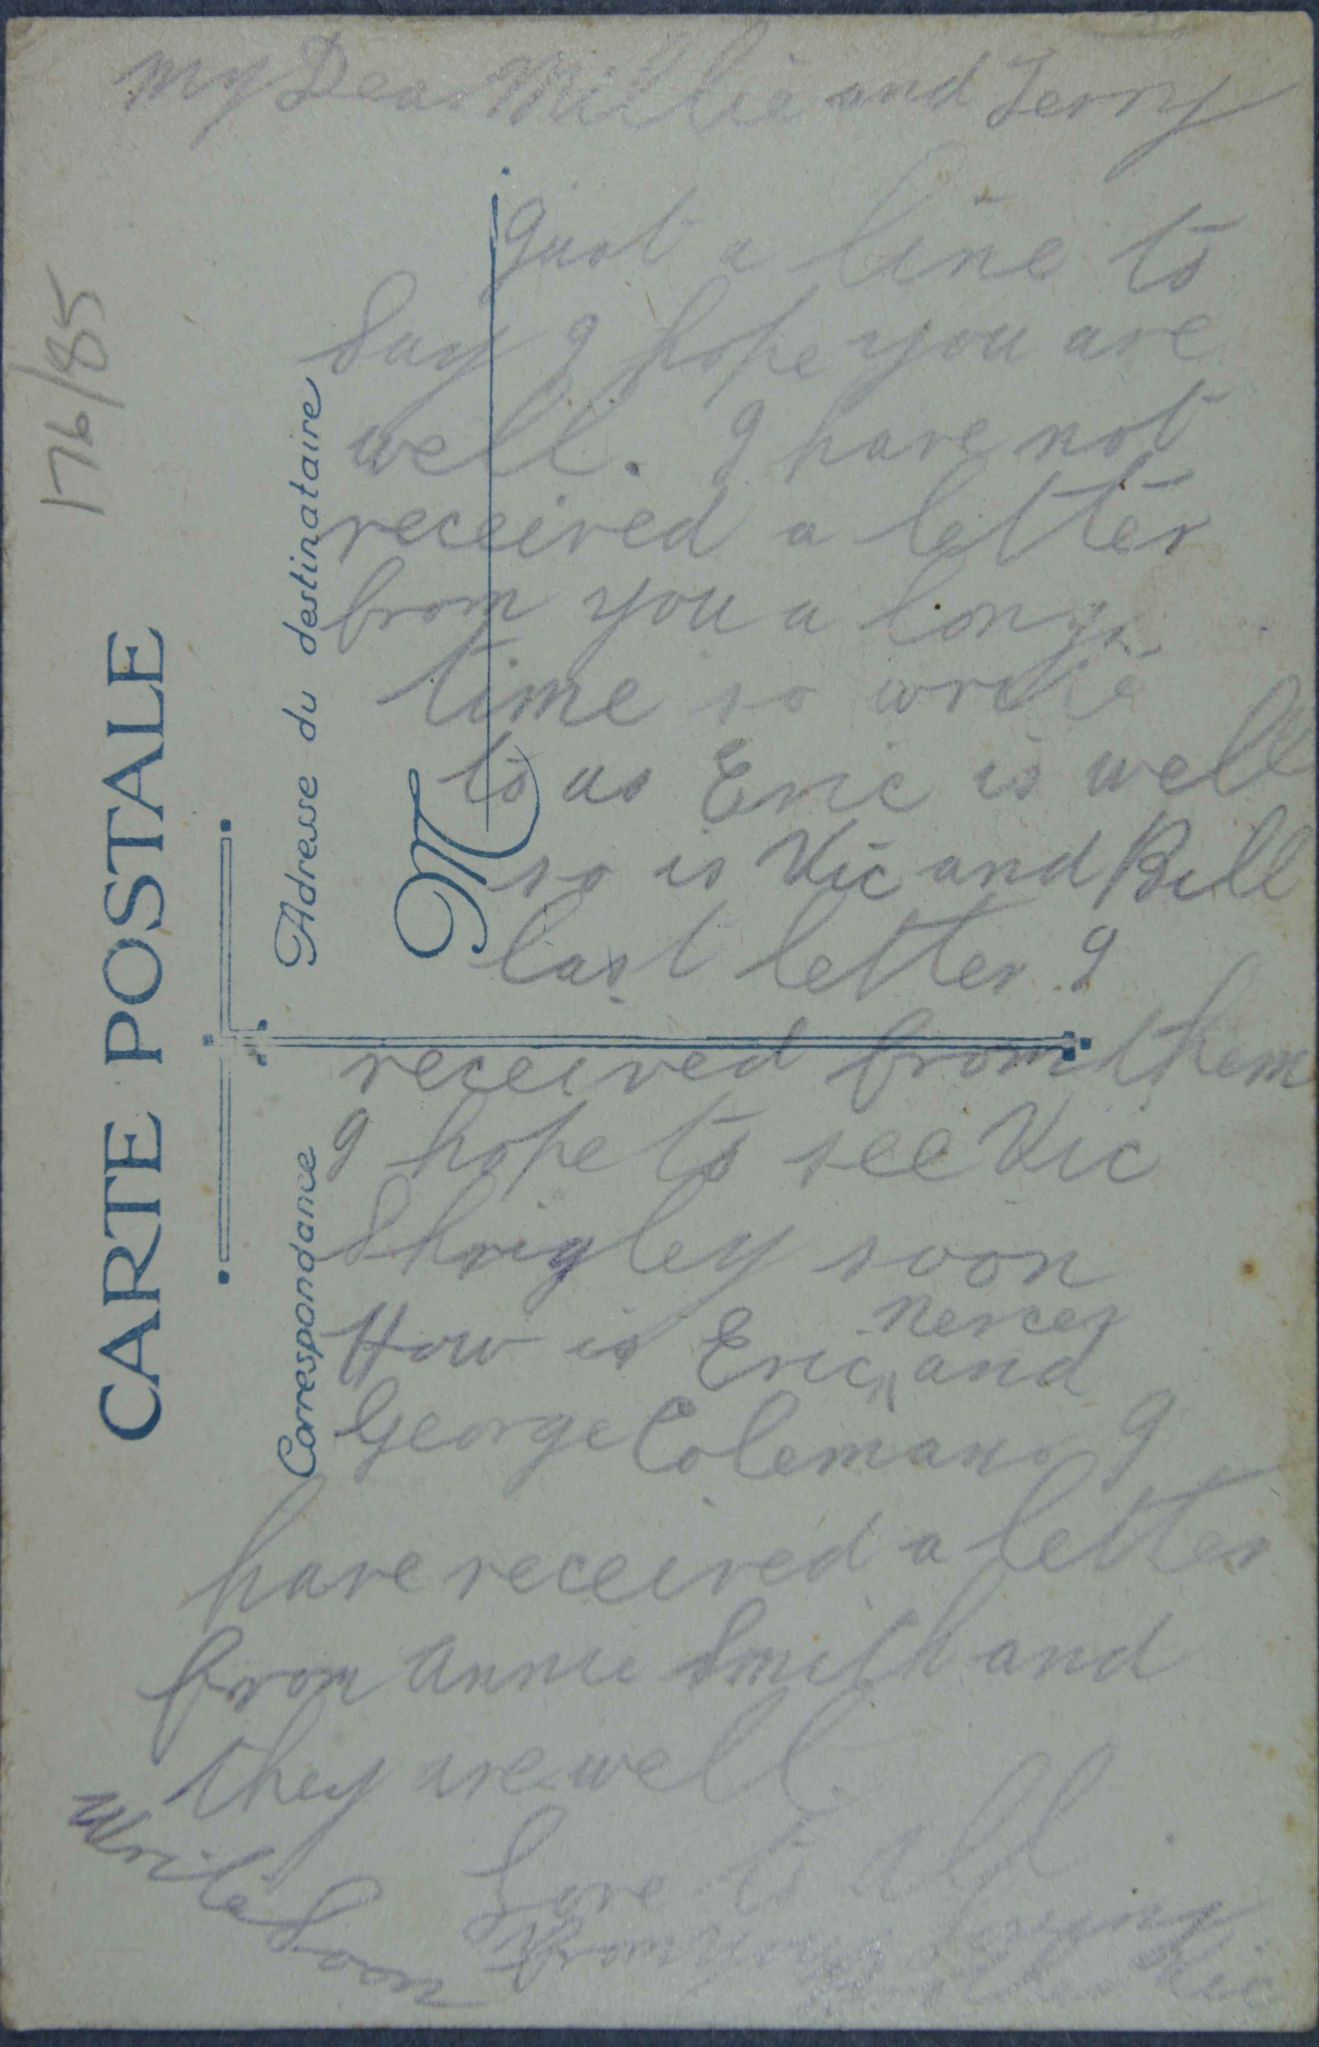 My Dear Millie and Terry
Just a line to
Say I hope you are
well. I have not
received a letter
from you a long
time so write
to us Eric is well
so is Vic and Bill
last letter I
received from them
I hope to see Vic
Shrigley soon
How is Eric Mercer and
George Colemans I
have received a letter
from Annie Smith and
they are well.
Love to All
From Your Loving
Brother Vic
Write Soon
176/85
CARTE POSTALE
Correspondance
Adresse du destinataire
M